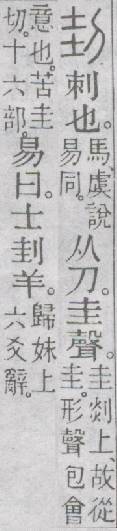 刲刺也。馬、虞說易同。从刀。圭聲。圭剡上、故從圭。形聲包會
意也。苦圭切。十六部。易曰。士刲羊。歸妹上六爻辭。